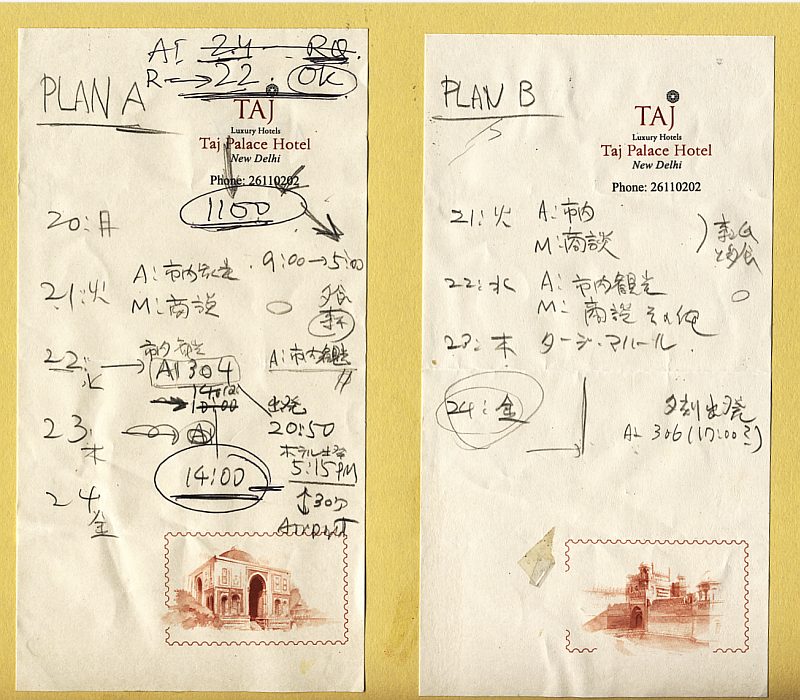 AI 24 RQ
R→22 OK
PLAN A
TAJ
Luxury Hotels
Taj Palace Hotel
New Delhi
Phone: 26110202
1100
20:月
9:00→5:00
21:火 A:市内
M:商談
夕食
22:水
→AI 304
A:市内観光
14:00
出発
23木 AI
20:50
ホテル出発
5:15PM
14:00
↕30分
24金
AIRPORT
PLAN B
TAJ
Luxury Hotels
Taj Palace Hotel
New Delhi
Phone: 26110202
21:火 A:市内
M:商談
と夕食
22:水 A:市内観光
M:商談 その他
23:木 タージ・マハール
24:金
夕刻出発
AI 306 (17:00?)